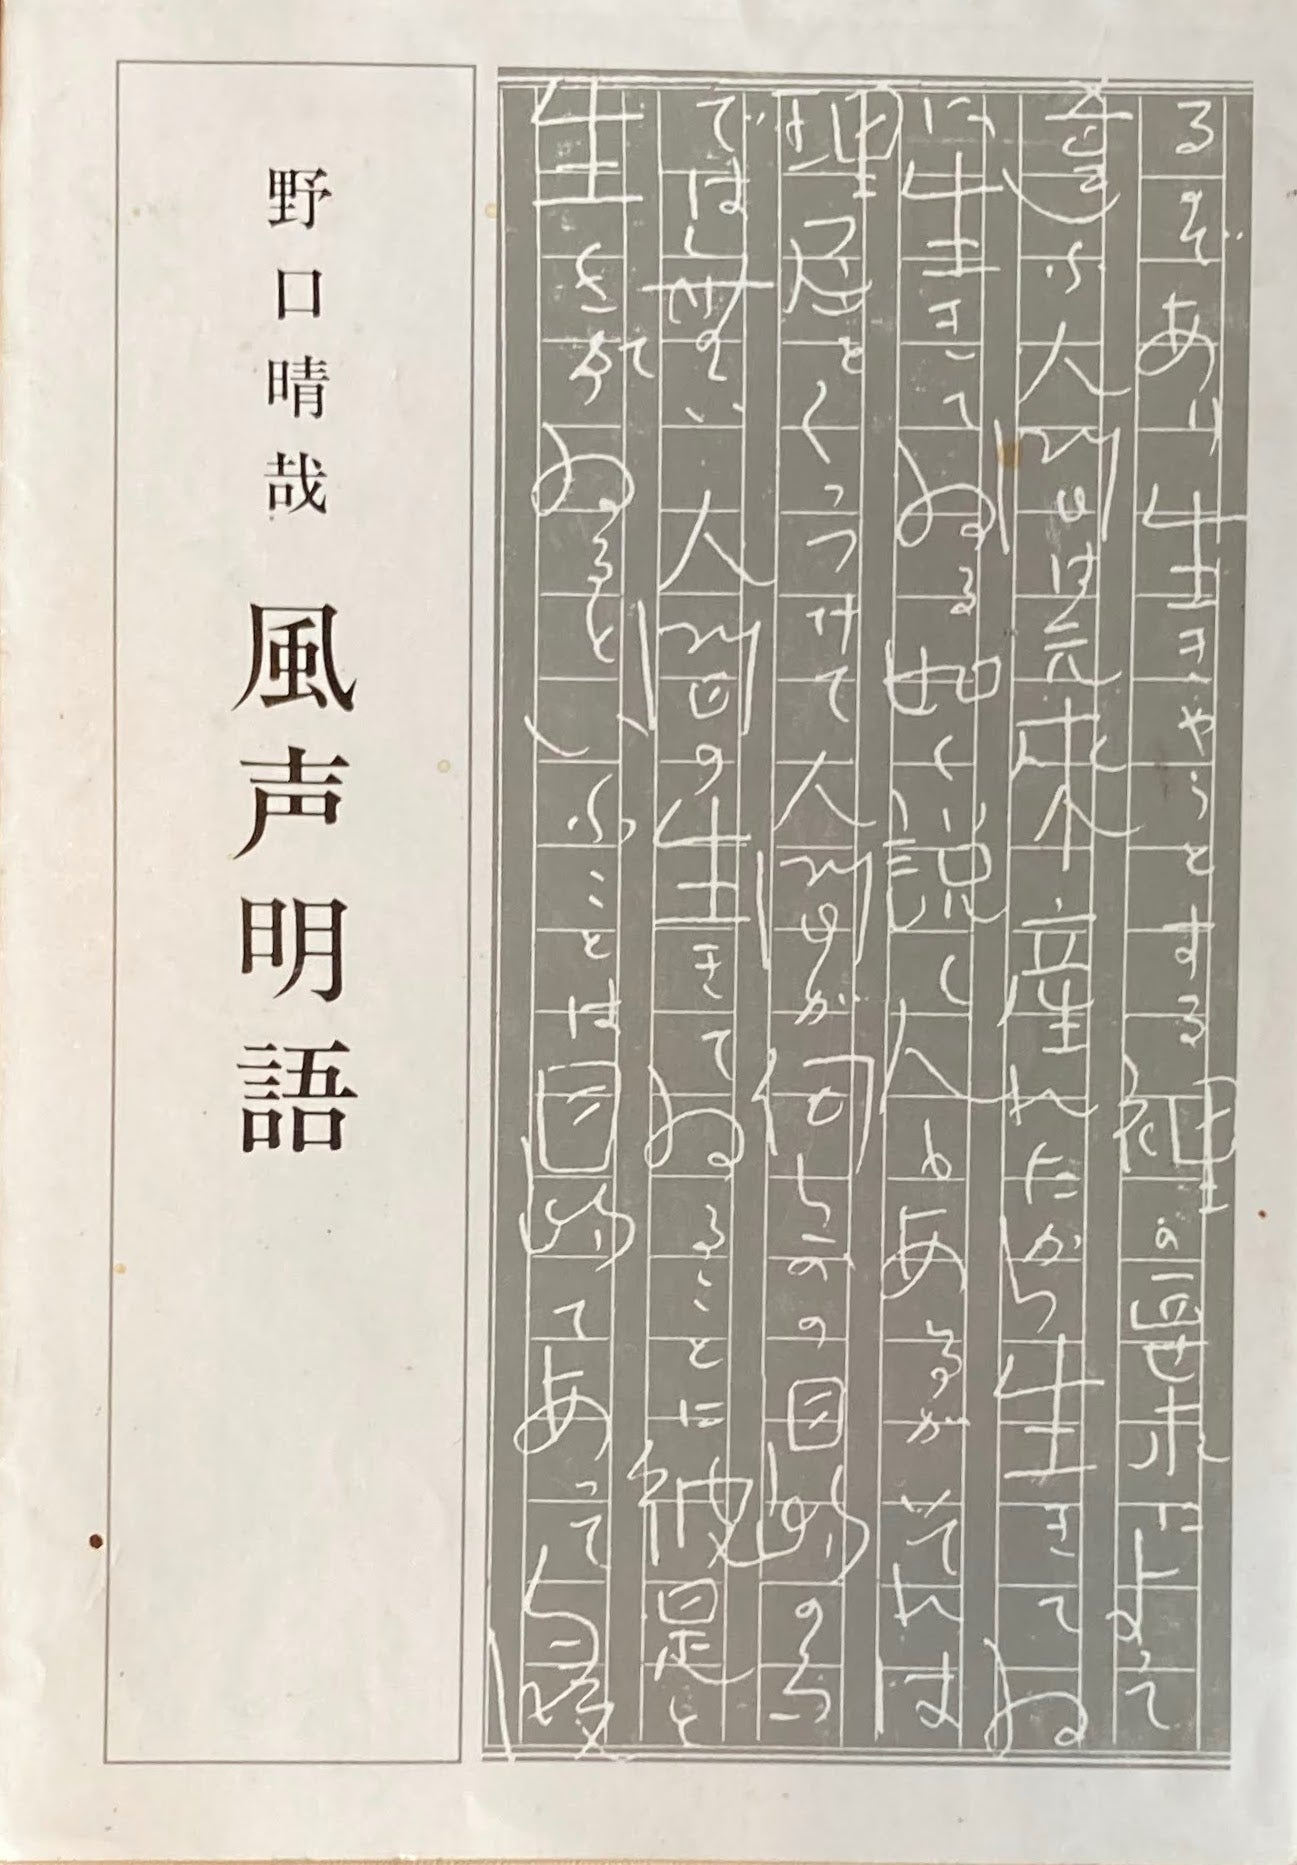 野口晴哉 風声明語
生きてゐるといふことは目的であって手段
では無い 人間の生きてゐることに彼是と
理屈をくっつけて人間が何らかの目的の為
に生きてゐる如く説く人もあるが それは
違ふ 人間は元来産れたから生きてゐ
るのであり 生きやうとする裡の要求によって